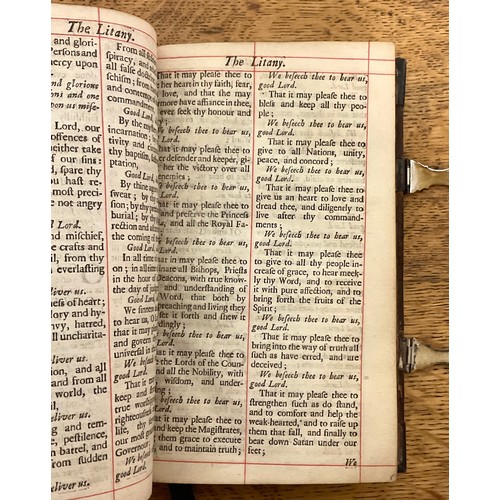 The Litany.
and glori-
Persons and
mercy upon
and glorious
ons and one
on us mise-
Lord, our
offences of
neither take
of our sins:
rd, spare thy
ou hast re-
most preci-
Lord.
nd mischief,
he crafts and
il, from thy
everlasting
liver us.
ness of heart;
lory and hy-
nvy, hatred,
ll uncharita-
liver us.
and all
and from all
the world,
il,
liver us.
ng and tem-
e, pestilence,
n battel, and
from sudden
From all
spiracy, and
all false doctrin
schism; from
and contemp
commandment
Good Lord,
By the
incarnation;
tivity and
thy baptism,
ptation,
Good Lord,
By thine
sweat; by
sion; by thy
burial; by
rection and
the coming
Good Lord,
In all time
on; in all time
in the hour
the day of
Good Lord,
We
to hear us, O
and
and govern
universal in
We
good Lord.
That it
keep and
true
righteousness
life, thy
our most
Governor;
We
good Lord.
The Litany.
That it may please thee to
her heart in thy faith, fear,
love, and that she may
more have affiance in thee,
ever seek thy honour and
ry;
We beseech thee to hear us,
d Lord.
That it may please thee to
er defender and keeper, gi-
her the victory over all
enemies;
We beseech thee to hear us,
d Lord.
That it may please thee to
and preserve the Princess
and all the Royal Fa-
We beseech thee to hear us,
Lord.
That it may please thee to
inate all Bishops, Priests
Deacons, with true know-
and understanding of
Word, that both by
preaching and living they
et it forth and shew it
rdingly;
We beseech thee to hear us,
Lord.
That it may please thee to
the Lords of the Coun-
and all the Nobility, with
wisdom, and under-
ing;
We beseech thee to hear us,
Lord.
That it may please thee to
and keep the Magistrates,
g them grace to execute
e, and to maintain truth;
We beseech thee to hear us,
good Lord.
That it may please thee to
bless and keep all thy peo-
ple;
We beseech thee to hear us,
good Lord.
That it may please thee to
give to all Nations, unity,
peace, and concord;
We beseech thee to hear us,
good Lord.
That it may please thee to
give us an heart to love and
dread thee, and diligently to
live after thy command-
ments;
We beseech thee to hear us,
good Lord.
That it may please thee
to give to all thy people in-
crease of grace, to hear meek-
ly thy Word, and to receive
it with pure affection, and to
bring forth the fruits of the
Spirit;
We beseech thee to hear us,
good Lord.
That it may please thee to
bring into the way of truth all
such as have erred, and are
deceived;
We beseech thee to hear us,
good Lord.
That it may please thee to
strengthen such as do stand,
and to comfort and help the
weak-hearted, and to raise up
them that fall, and finally to
beat down Satan under our
feet;
We